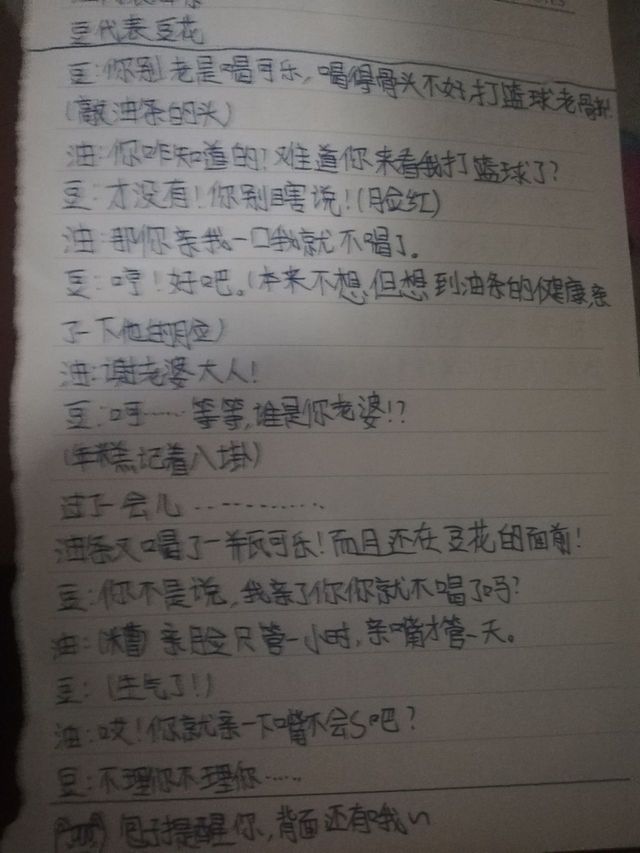 豆代表豆花
豆:你别老是喝可乐,喝得骨头不好,打篮球老骨折
(敲油条的头)
油:你咋知道的!难道你来看我打篮球了?
豆:才没有!你别瞎说!(脸红)
油:那你亲我一口我就不喝了。
豆:哼!好吧。(本来不想,但想到油条的健康,亲
了一下他的脸)
油:谢老婆大人!
豆:哼……等等,谁是你老婆!?
(年糕记着八卦)
过了一会儿…………
油条又喝了一瓶可乐!而且还在豆花的面前!
豆:你不是说,我亲了你你就不喝了吗?
油:亲脸只管一小时,亲嘴才管一天。
豆:(生气了!)
油:哎!你就亲一下嘴不会S吧?
豆:不理你不理你……
包子提醒你,背面还有哦~